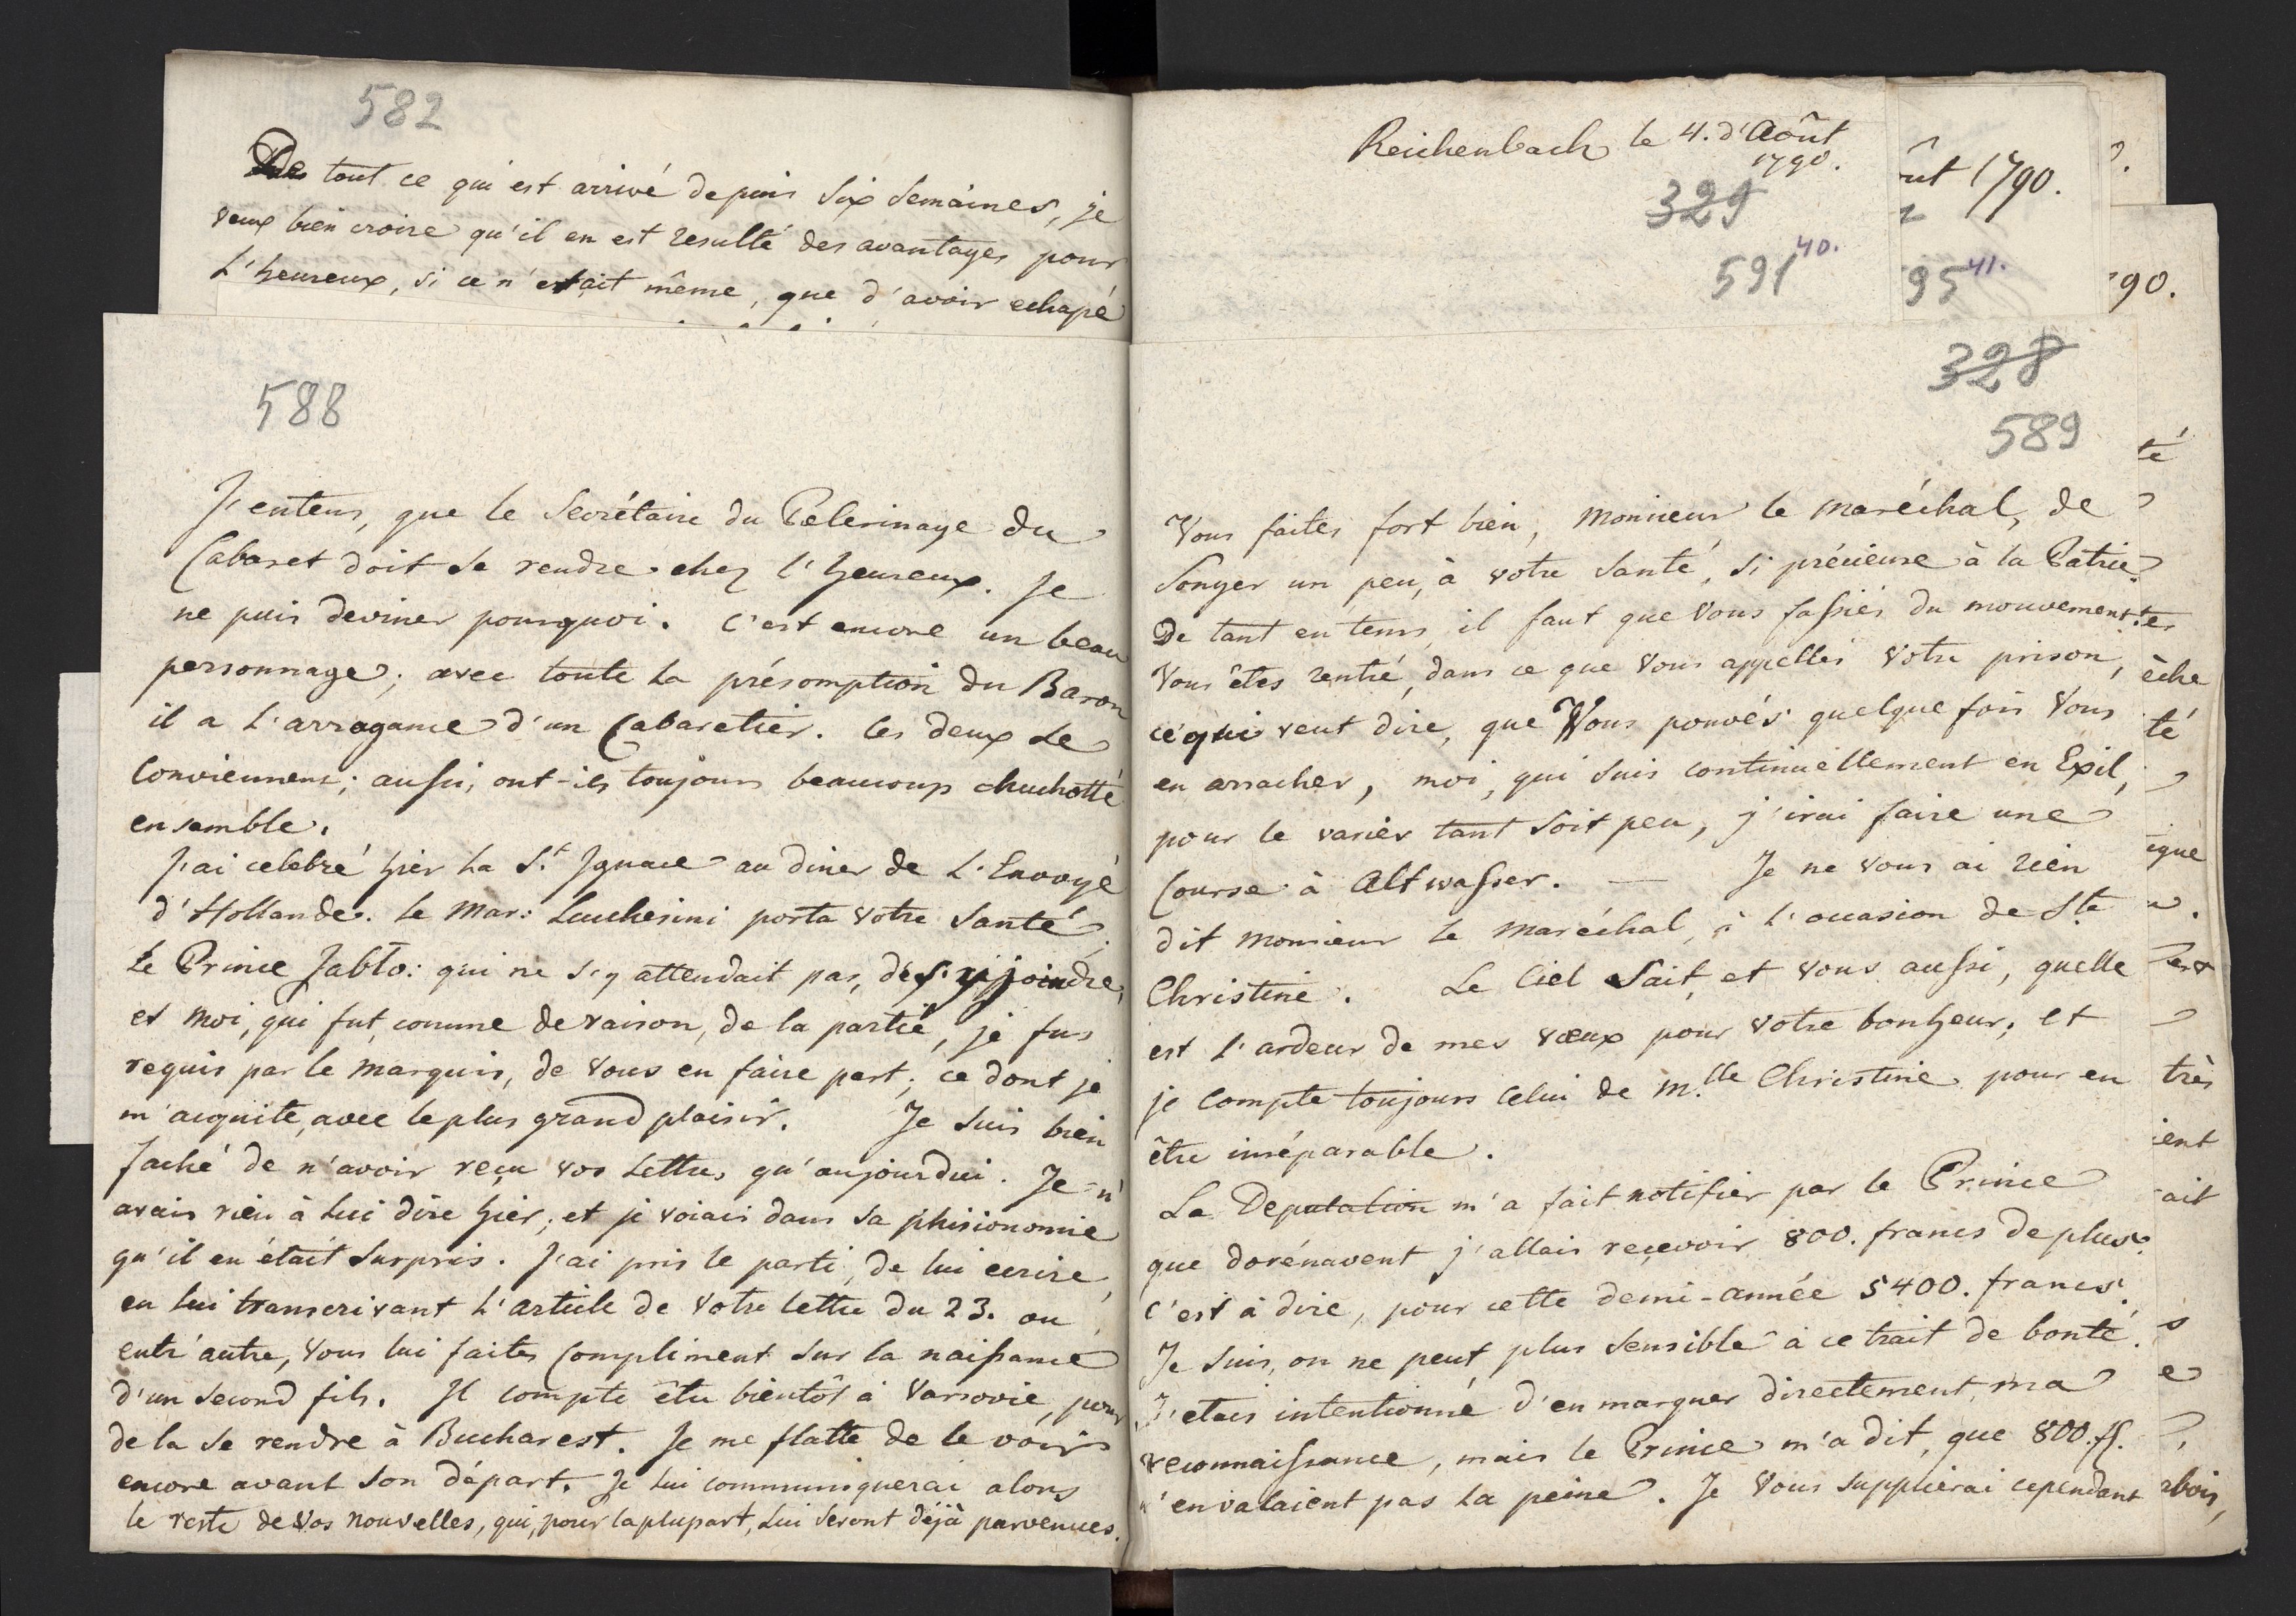 582
De tout ce qui est arrivé depuis six semaines, je
veux bien croire qu'il en est resulté des avantages pour
L'heureux, si ce n'était même, que d'avoir echapé
588
J'entens, que le Secrétaire du Pelerinage du
Cabaret doit se rendre chez l'heureux. Je
ne puis deviner pourquoi. C'est encore un beau
personnage; avec toute la présomption du Baron
il a l'arrogance d'un Cabaretier. Ces deux se
conviennent; aussi, ont-ils toujours beaucoup chuchotté
ensemble.
J'ai celebré hier la St Ignace au diner de L'Envoyé
d'Hollande. Le Mar: Lucchesini porta votre Santé.
Le Prince Jabło: qui ne s'y attendait pas, de s'y joindre,
et moi, qui fut, comme de raison, de la partie, je fus
requis par le Marquis, de vous en faire part; ce dont je
m'acquite, avec le plus grand plaisir. Je suis bien
faché de n'avoir reçu vos lettres, qu'aujourdui. Je n'
avais rien à lui dire hier, et je voiais dans sa phisionomie
qu'il en était surpris. J'ai pris le parti, de lui ecrire,
en lui transcrivant l'article de votre lettre du 23. ou
entr'autre, vous lui faites Compliment sur la naissance
d'un second fils. Il compte être bientôt à Varsovie, pour
de la se rendre à Bucharest. Je me flatte de le voir
encore avant son départ. Je lui communiquerai alors
le reste de vos nouvelles, qui, pour la plupart, lui seront déjà parvenues.
Reichenbach le 4. d'Août
1790.
329
591 40.
ût 1790.
95 41.
90.
328
589
Vous faites fort bien, Monsieur le Maréchal, de
songer un peu, à votre Santé, si précieuse à la Patrie.
De tant en tems, il faut que vous fassiés du mouvement.
Vous êtes rentré, dans ce que vous appellés votre prison,
ce qui veut dire, que Vous pouvés quelque fois vous
en arracher, moi, qui suis continuellement en Exil,
pour le varier tant soit peu, j'irai faire une
Course à Altwasser. — Je ne vous ai rien
dit Monsieur le Maréchal, à l'occasion de Ste
Christine. Le Ciel sait, et vous aussi, quelle
est l'ardeur de mes vœux pour votre bonheur; et
je compte toujours celui de Mlle Christine pour en
être inséparable.
La Deputation m'a fait notifier par le Prince
que dorénavent j'allais reçevoir 800. francs de plus.
C'est à dire, pour cette demi-année 5400. francs.
Je suis, on ne peut, plus sensible à ce trait de bonté.
J'etais intentionné d'en marquer directement, ma
reconnaissance, mais le Prince m'a dit, que 800. fl.
n'en valaient pas la peine. Je vous supplierai cependant
té
tes
èche
té
ique
très
ient
ait
s
e
bois,